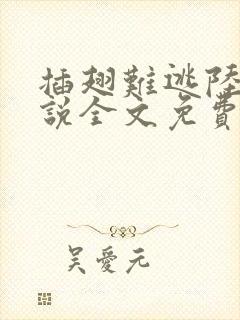 插翅難逃陸
說全文免費
吳愛元